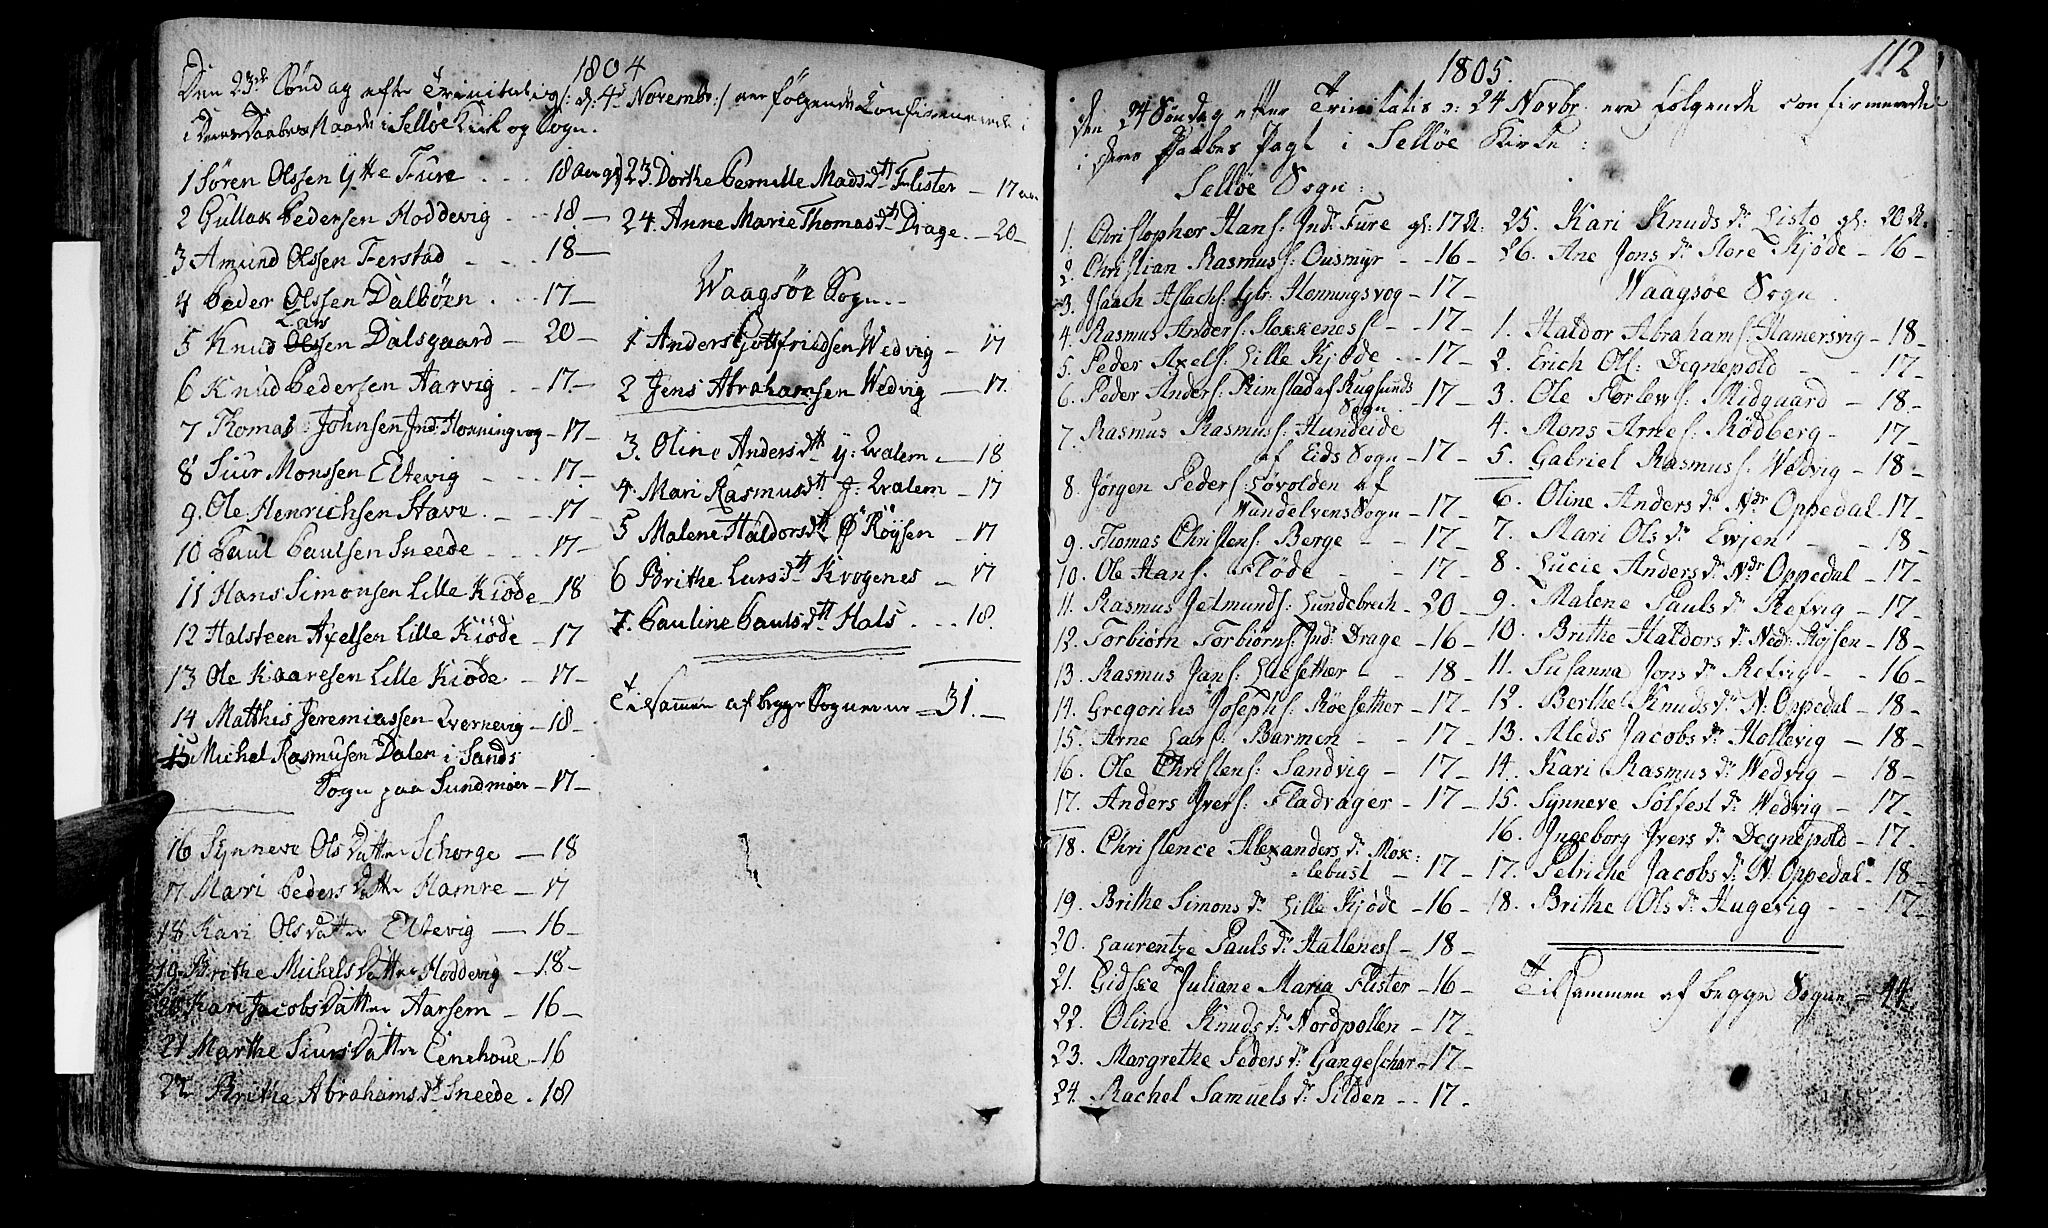 1804
Den 23de Søndag efter Trinitatis /: d: 4de Novembr :/ ere følgende Confirmerede i
deres Daabes Naade i Selløe Kirk og Sogn.
1 Søren Olssen Ytte Fure - - - 18 aar gl
2 Gullak Pedersen Hoddevig - - - 18 -
3 Amund Olssen Ferstad - - - 18 -
4 Peder Olssen Dalbøen - - - 17 -
Lars
5 Knud Olssen Dalsgaard - 20 -
6 Knud Pedersen Aarvig - - 17 -
7 Thomas Johnsen Ind: Honningvog - 17 -
8 Siur Monssen Eltevig - - - 17 -
9. Ole Henrichsen Stave - - - 17 -
10 Paul Paulsen Sneede - - - 17 -
11 Hans Simonsen Lille Kiøde - 18
12 Halsteen Axelsen Lille Kiøde - 17
13 Ole Kaaresen Lille Kiøde - 17 -
14 Matthis Jeremiassen Qvernevig - 18 -
15 Michel Rasmusen Dalen i Sands
Sogn paa Sundmøer - 17 -
16 Synneve Ols Datter Schorge - 18
17 Mari Peders Datter Hamre - 17
18 Kari Ols Datter Eltevig - 16 -
19 Brithe Michels Datter Hoddevig - 18 -
20 Kari Jacobs Datter Aarsem - 16 -
21 Marthe Siurs Datter Eenehoue - 16
22 Brithe Abrahams dtr Sneede - 18
23 Dorthe Pernille Mads dtr Flister - 17 aar
24. Anne Marie Thomas dtr Drage - 20 -
Waagsøe Sogn -
1 Anders Gottfriedsen Wedvig - 17
2 Jens Abrahamsen Wedvig - 17.
3. Oline Anders dtr y: Qvalem - 18
4 Mari Rasmus dtr J: Qvalem - 17
5 Malene Haldors dtr Ø Røysen - 17
6 Brithe Lars dtr Kvogenes - 17
7. Pauline Pauls dtr Hals - - - 18.
Tilsammen af begge Sognerne - 31. -
112
1805.
Den 24 Søndag efter Trinitatis o: 24 Novbr. ere følgende Confirmerede
i deres Daabes Pagt i Selløe Kirke:
Selløe Sogn:
1. Christopher Hans: Ind: Fure gl: 17 Ar:
2. Christian Rasmuss: Ousmyr - - 16 -
3. Isaach Aslachs: Ytr: Henningsvog - 17 -
4. Rasmus Anders: Stokkeness - - 17 -
5. Peder Axels: Lille Kjøde - - 17 -
6. Peder Anders: Rimstad af Rugsunds
Sogn - 17 -
7. Rasmus Rasmuss: Hundeide
af Eids Sogn - 17 -
8. Jørgen Peders: Løvolden af
Wandelvens Sogn - 17 -
9. Thomas Christens: Berge - - 17 -
10. Ole Hans: Fløde - - 17 -
11. Rasmus Jetmunds: Lundebrech - 20 -
12. Torbiørn Torbiørns: Ind: Drage - 16 -
13. Rasmus Jans: Husether - - 18 -
14. Gregorius Josephs: Røesether - 17 -
15. Arne Lars: Barmen - - 17 -
16. Ole Christens: Sandvig - 17 -
17. Anders Ivers: Fladrager - 17 -
18. Christence Alexanders dr Mosc:
=lebust - 17 -
19. Brithe Simons dr Lille Kjøde - 16 -
20. Laurentze Pauls dr Halleness - 18 -
21. Gidske Juliane Maria Flister - 16 -
22. Oline Knuds dr Nordpollen - 17 -
23. Margrethe Peders dr Gangeschar - 17 -
24. Rachel Samuels dr Silden - - 17 -
25. Kari Knuds dr Listo gl: 20 Ar.
26. Ane Jons dr Store Kjøde - 16 -
Waagsøe Sogn.
1. Haldor Abrahams: Hamersvig - 18 -
2. Erich Ols: Degnepold - - 17 -
3. Ole Torlevs: Midgaard - 18 -
4. Mons Arnes: Rødberg - 17 -
5. Gabriel Rasmuss: Wedvig - 18 -
6. Oline Anders dr Ndr Oppedal - 17 -
7. Mari Ols dr Ewjen - - 18 -
8. Lucie Anders dr Ndr Oppedal - 17 -
9. Malene Pauls dr Refvig - 17 -
10. Brithe Haldors dr Ned: Røjsen - 18 -
11. Susanna Jons dr Refvig - - 16 -
12. Berthe Knuds dr N. Oppedal - 18 -
13. Aleds Jacobs dr Hollevig - 18 -
14. Kari Rasmus dr Wedvig - 18 -
15. Synneve Sølfest dr Wedvig - 17 -
16. Ingeborg Ivers dr Degnepold - 17 -
17. Petriche Jacobs dr N. Oppedal - 18 -
18. Brithe Ols dr Hugevig - - 17 -
Tilsammen af begge Sogne = 44